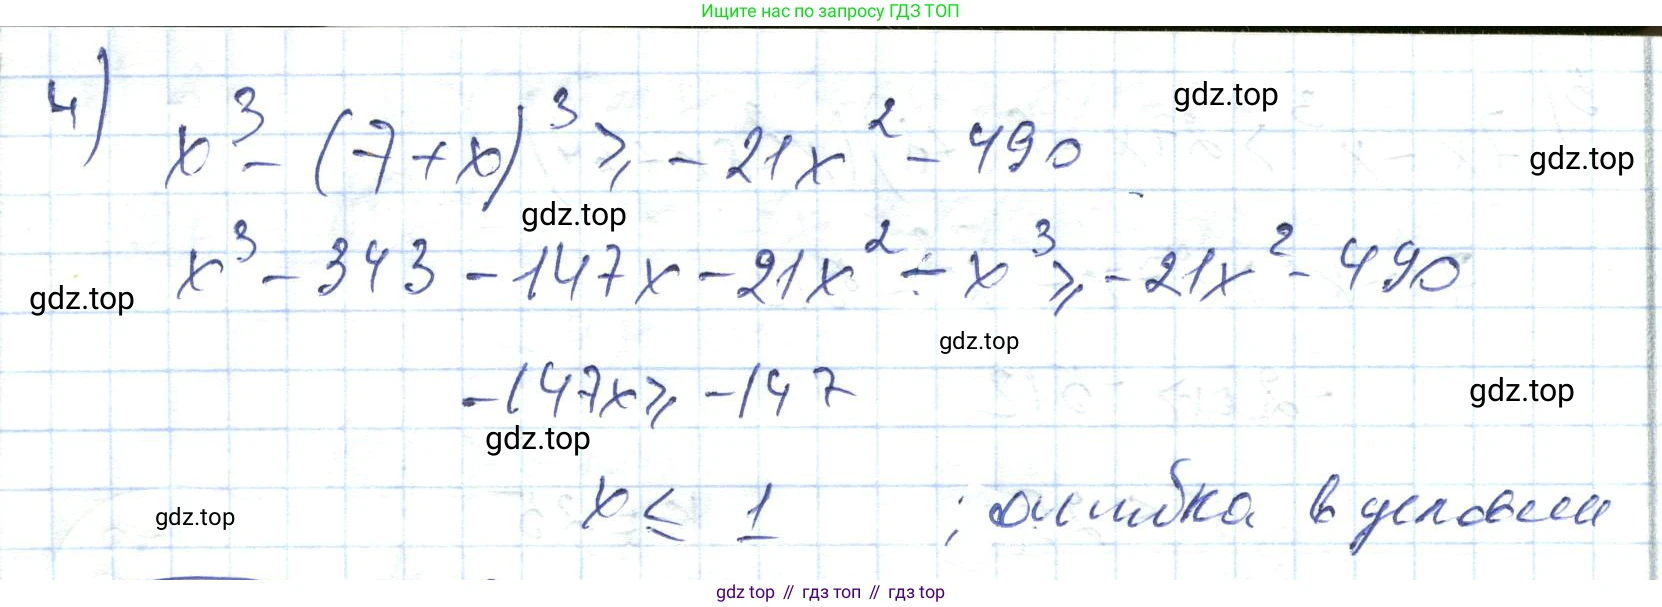 Ищите нас по запросу ГДЗ ТОП
4) x³ - (7 + x)³ ⩾ - 21x² - 490
gdz.top
gdz.top
gdz.top
x³ - 343 - 147x - 21x² - x³ ⩾ - 21x² - 490
gdz.top
gdz.top
-147x ⩾ -147
gdz.top
gdz.top
x ≤ 1 ; ошибка в условии
gdz.top
gdz top // гдз топ // gdz top